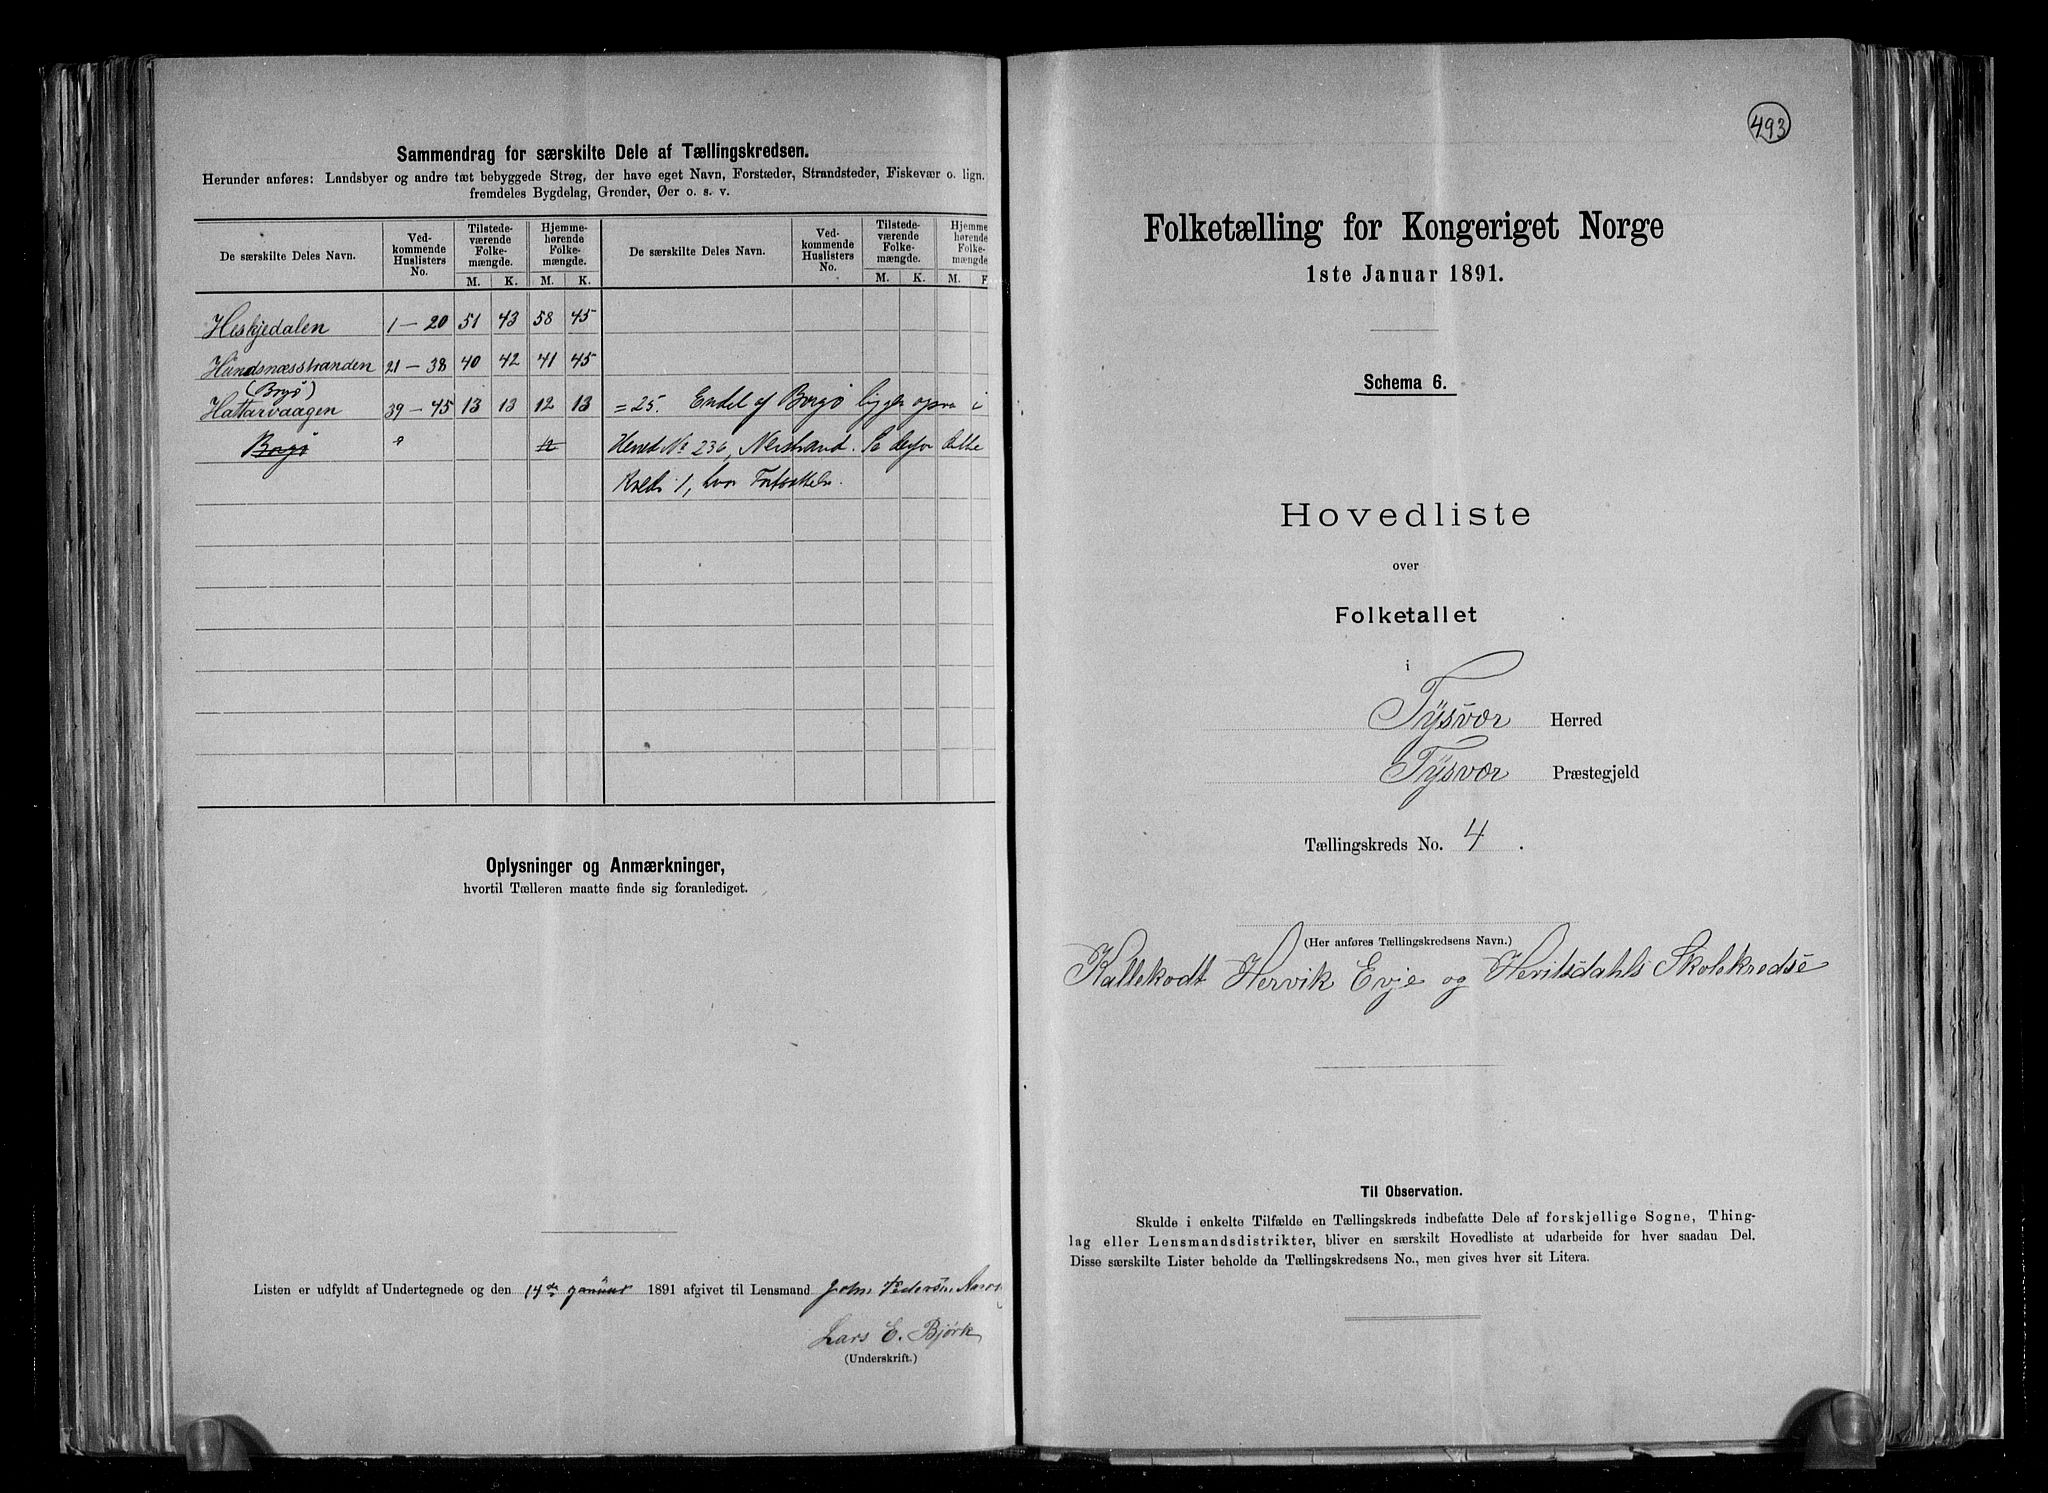 Sammendrag for særskilte Dele af Tællingskredsen.
Herunder anføres: Landsbyer og andre tæt bebyggede Strøg, der have eget Navn, Forstæder, Strandsteder, Fiskevær o. lign.
fremdeles Bygdelag, Grender, Øer o. s. v.
De særskilte Deles Navn. Ved-kommende Huslisters No. Tilstede-værende Folke-mængde. Hjemme-hørende Folke-mængde. De særskilte Deles Navn. Ved-kommende Huslisters No. Tilstede-værende Folke-mængde. Hjemme-hørende Folke-mængde
M. K. M. K. M. K. M.
Heskjedalen 1 — 20 51 43 58 45
Hundsnæsstranden 21 — 38 40 42 41 45
(Borgø)
Hattarvaagen 39 — 45 13 13 12 13 = 25. Endel af Borgø ligger ogsaa i
Borgø Herred No 236, Nerstrand. Se derfor dette
Kreds 1, hvor
Oplysninger og Anmærkninger,
hvortil Tælleren maatte finde sig foranlediget.
Listen er udfyldt af Undertegnede og den 14de januar 1891 afgivet til Lensmand John Pedersen
Lars E. Bjørk
(Underskrift.)
493
Folketælling for Kongeriget Norge
1ste Januar 1891.
Schema 6.
Hovedliste
over
Folketallet
i
Tysvær Herred
Tysvær Præstegjeld
Tællingskreds No. 4.
(Her anføres Tællingskredsens Navn.)
Kallekodt Hervik Evje og Hevitsdahls Skolekredse
Til Observation.
Skulde i enkelte Tilfælde en Tællingskreds indbefatte Dele af forskjellige Sogne, Thing-
lag eller Lensmandsdistrikter, bliver en særskilt Hovedliste at udarbeide for hver saadan Del.
Disse særskilte Lister beholde da Tællingskredsens No., men gives hver sit Litera.